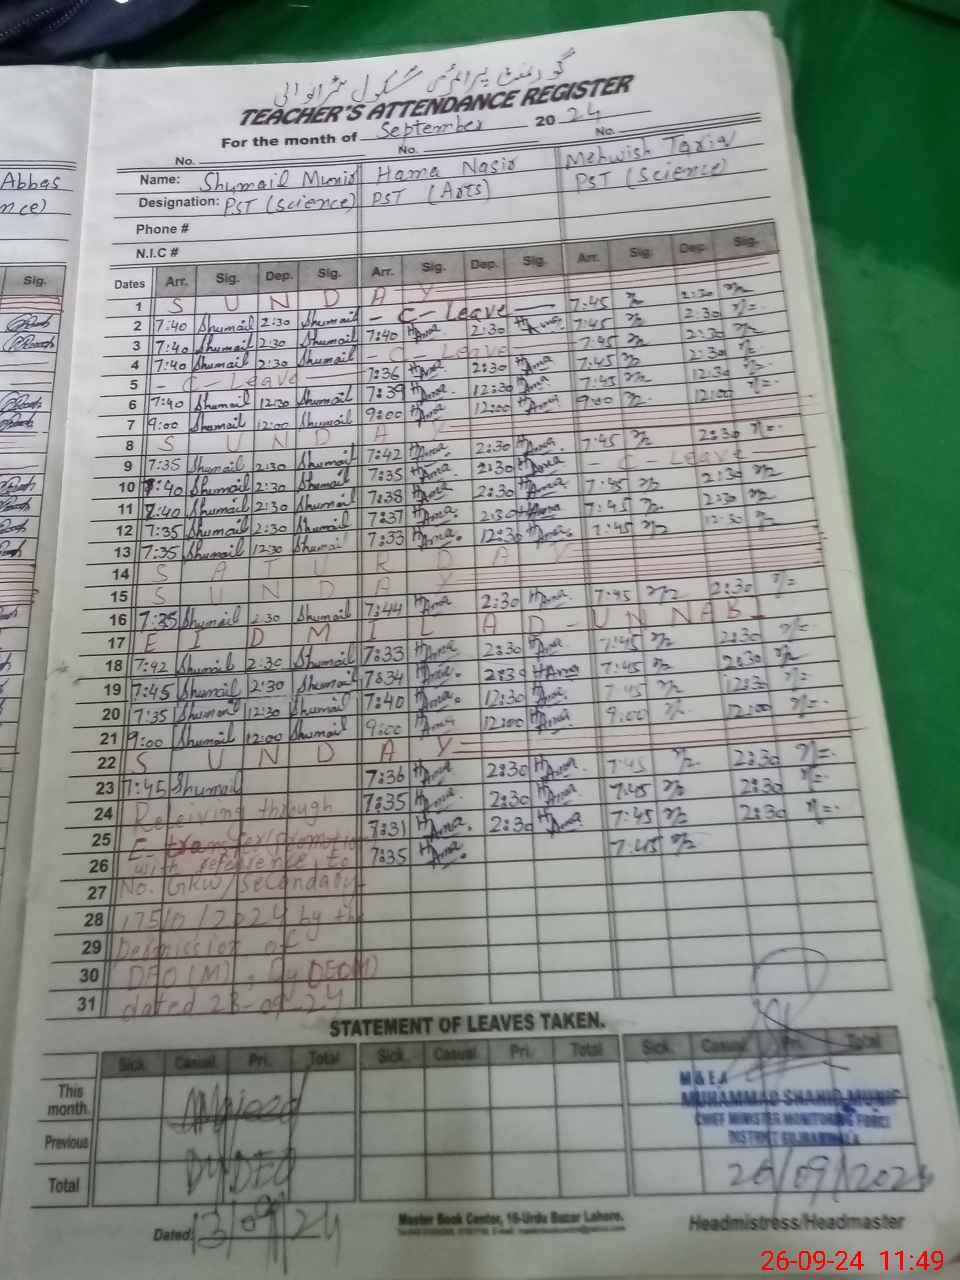 گورنمنٹ پرائمری سکول
TEACHER'S ATTENDANCE REGISTER
For the month of September 2024
No. No. No.
Abbas
nce)
Name: Shumail Munir Hama Nasir Mehwish Tariq
Designation: PST (Science) PST (Arts) PST (Science)
Phone #
N.I.C #
Sig.
Dates Arr. Sig. Dep. Sig. Arr. Sig. Dep. Sig. Arr. Sig. Dep. Sig.
1 S U N D A Y
2 7:40 Shumail 2:30 Shumail - C - Leave - 7:45 2:30
3 7:40 Shumail 2:30 Shumail 7:40 Hama 2:30 Hama 7:45 2:30
4 7:40 Shumail 2:30 Shumail - C - Leave 7:45 2:30
5 - C - Leave - 7:36 Hama 2:30 Hama 7:45 2:30
6 7:40 Shumail 12:30 Shumail 7:39 Hama 12:30 Hama 7:45 12:30
7 9:00 Shumail 12:00 Shumail 9:00 Hama 12:00 Hama 9:00 12:00
8 S U N D A Y
9 7:35 Shumail 2:30 Shumail 7:42 Hama 2:30 Hama 7:45 2:30
10 7:40 Shumail 2:30 Shumail 7:35 Hama 2:30 Hama - C - Leave
11 7:40 Shumail 2:30 Shumail 7:38 Hama 2:30 Hama 7:45 2:30
12 7:35 Shumail 2:30 Shumail 7:37 Hama 2:30 Hama 7:45 2:30
13 7:35 Shumail 12:30 Shumail 7:33 Hama 12:30 Hama 7:45 12:30
14 S A T U R D A Y
15 S U N D A Y
16 7:35 Shumail 2:30 Shumail 7:44 Hama 2:30 Hama 7:45 2:30
17 E I D M I L A D - U N N A B I
18 7:42 Shumail 2:30 Shumail 7:33 Hama 2:30 Hama 7:45 2:30
19 7:45 Shumail 2:30 Shumail 7:34 Hama 2:30 Hama 7:45 2:30
20 7:35 Shumail 12:30 Shumail 7:40 Hama 12:30 Hama 7:45 12:30
21 9:00 Shumail 12:00 Shumail 9:00 Hama 12:00 Hama 9:00 12:00
22 S U N D A Y
23 7:45 Shumail 7:36 Hama 2:30 Hama 7:45 2:30
24 Releiving through 7:35 Hama 2:30 Hama 7:45 2:30
25 E-transfer/Promotion 7:31 Hama 2:30 Hama 7:45 2:30
26 with reference to 7:35 Hama 7:45
27 No. GRW/Secondary
28 175/0/2024 by the
29 Permission of
30 DEO(M), Dy DEO(M)
31 dated 23-09-24
STATEMENT OF LEAVES TAKEN.
Sick Casual Pri. Total Sick Casual Pri. Total Sick Casual Pri. Total
This month.
Previous
Total
Dy DEO
M & E.A
MUHAMMAD SHAHID MUNIR
CHIEF MINISTER MONITORING FORCE
DISTRICT GUJRANWALA
26/09/2024
Dated: 13/09/24
Master Book Center, 16-Urdu Bazar Lahore.
Headmistress/Headmaster
26-09-24 11:49